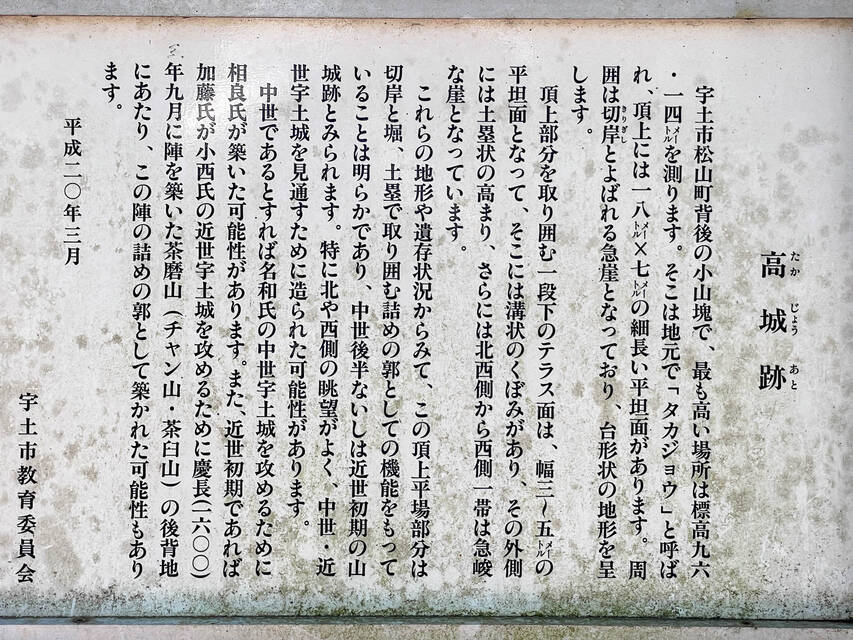 高城跡
たか じょう あと
宇土市松山町背後の小山塊で、最も高い場所は標高九六
・一四メートルを測ります。そこは地元で「タカジョウ」と呼ば
れ、頂上には一八メートル×七メートルの細長い平坦面があります。周
囲は切岸とよばれる急崖となっており、台形状の地形を呈
きりぎし
します。
頂上部分を取り囲む一段下のテラス面は、幅三〜五メートルの
平坦面となって、そこには溝状のくぼみがあり、その外側
には土塁状の高まり、さらには北西側から西側一帯は急峻
な崖となっています。
これらの地形や遺存状況からみて、この頂上平場部分は
切岸と堀、土塁で取り囲む詰めの郭としての機能をもって
いることは明らかであり、中世後半ないしは近世初期の山
城跡とみられます。特に北や西側の眺望がよく、中世・近
世宇土城を見通すために造られた可能性があります。
中世であるとすれば名和氏の中世宇土城を攻めるために
相良氏が築いた可能性があります。また、近世初期であれば
加藤氏が小西氏の近世宇土城を攻めるために慶長(一六〇〇)
年九月に陣を築いた茶磨山(チャン山・茶臼山)の後背地
にあたり、この陣の詰めの郭として築かれた可能性もあり
ます。
平成二〇年三月
宇土市教育委員会